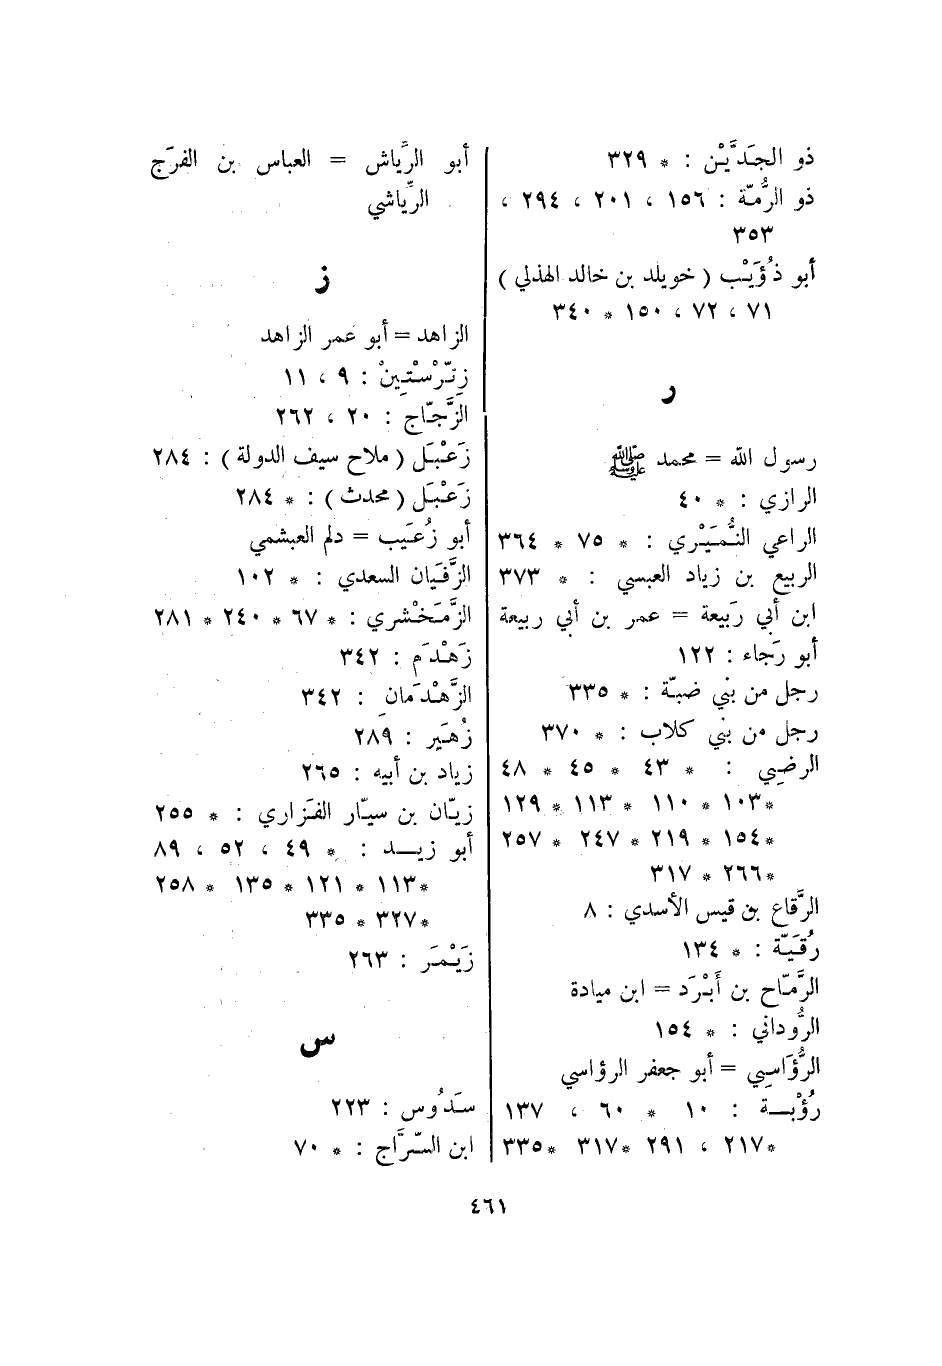 ذو الجَدَّيْن : * ٣٢٩
ذو الرُّمّة : ١٥٦ ، ٢٠١ ، ٢٩٤ ،
٣٥٣
أبو ذُؤَيْب ( خويلد بن خالد الهذلي )
٧١ ، ٧٢ ، ١٥٠ * ٣٤٠
ر
رسول الله = محمد ﷺ
الرازي : * ٤٠
الراعي النُّمَيْري : * ٧٥ * ٣٦٤
الربيع بن زياد العبسي : * ٣٧٣
ابن أبي رَبيعة = عمر بن أبي ربيعة
أبو رَجاء : ١٢٢
رجل من بني ضبّة : * ٣٣٥
رجل من بني كلاب : * ٣٧٠
الرضِي : * ٤٣ * ٤٥ * ٤٨
*١٠٣ * ١١٠ * ١١٣ * ١٢٩
*١٥٤ * ٢١٩ * ٢٤٧ * ٢٥٧
*٢٦٦ * ٣١٧
الرَّقاع بن قيس الأسدي : ٨
رُقَيّة : * ١٣٤
الرَّمّاح بن أَبْرَد = ابن ميادة
الرُّوداني : * ١٥٤
الرُّؤَاسِي = أبو جعفر الرؤاسي
رُؤْبــة : ١٠ * ٦٠ ، ١٣٧
*٢١٧ ، ٢٩١ *٣١٧ *٣٣٥
أبو الرِّياش = العباس بن الفرَج
الرِّياشي
ز
الزاهد = أبو عمر الزاهد
زِتّرْسْتِينْ : ٩ ، ١١
الزَّجّاج : ٢٠ ، ٢٦٢
زَعْبَل ( ملاح سيف الدولة ) : ٢٨٤
زَعْبَل ( محدث ) : * ٢٨٤
أبو زُعَيب = دلم العبشمي
الزَّفَيان السعدي : * ١٠٢
الزَّمَخْشري : * ٦٧ * ٢٤٠ * ٢٨١
زَهْدَم : ٣٤٢
الزَّهْدَمانِ : ٣٤٢
زُهَير : ٢٨٩
زياد بن أبيه : ٢٦٥
زبّان بن سيّار الفَزاري : * ٢٥٥
أبو زيــد : * ٤٩ ، ٥٢ ، ٨٩
*١١٣ * ١٢١ * ١٣٥ * ٢٥٨
*٣٢٧ * ٣٣٥
زَيْمَر : ٢٦٣
س
سَدُوس : ٢٢٣
ابن السّرَّاج : * ٧٠
٤٦١